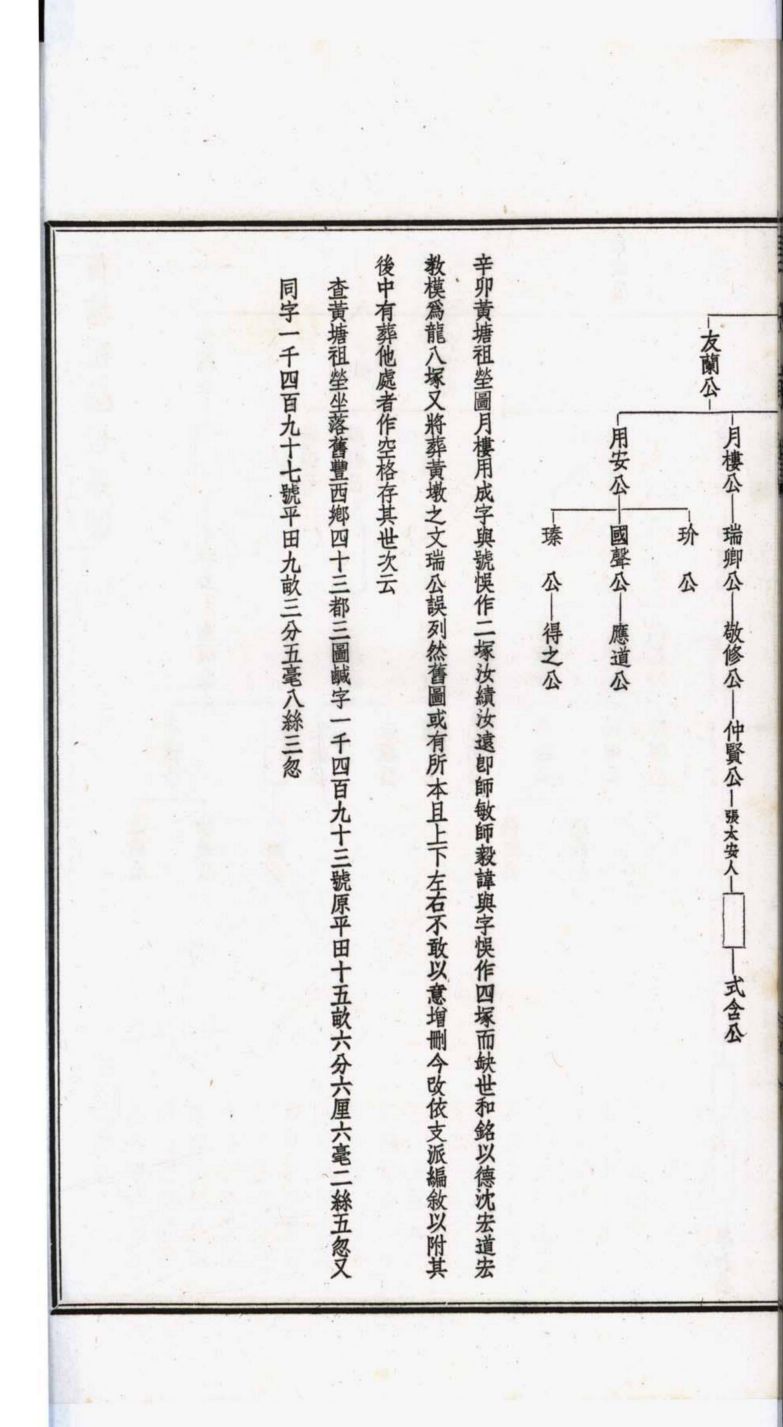 友蘭公
月樓公 瑞卿公 敬修公 仲賢公 張太安人 式含公
用安公
玠公
國聲公 應道公
瑧公 得之公
辛卯黃塘祖塋圖月樓用成字與號悞作二塚汝績汝遠卽師敏師毅諱與字悞作四塚而缺世和銘以德沈宏道宏
教模爲龍八塚又將葬黃墩之文瑞公誤列然舊圖或有所本且上下左右不敢以意增刪今改依支派編敘以附其
後中有葬他處者作空格存其世次云
查黃塘祖塋坐落舊豐西鄉四十三都三圖鹹字一千四百九十三號原平田十五畝六分六厘六毫二絲五忽又
同字一千四百九十七號平田九畝三分五毫八絲三忽